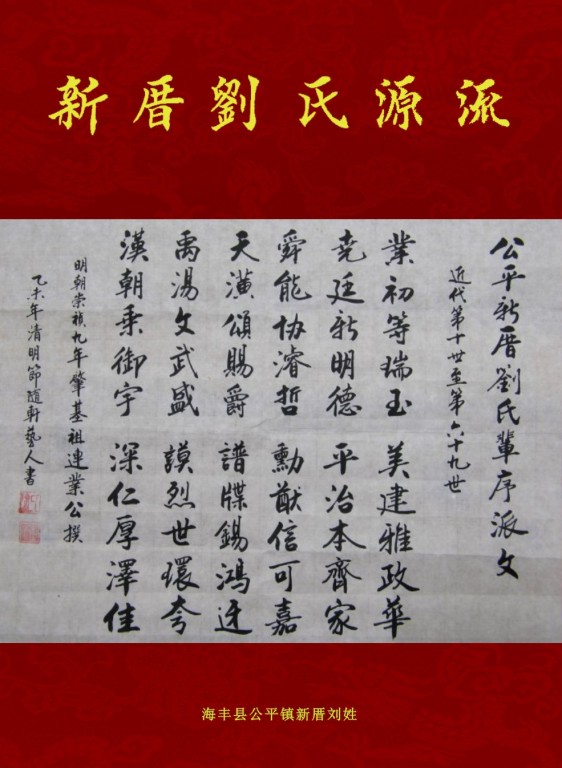 新厝劉氏源流
公平新厝劉氏輩序派文
近代第十世至第六十九世
業初等瑞玉 美建雅政華
尭廷新明德 平治本齊家
舜能协濬哲 勳猷信可嘉
天潢頌賜爵 譜牒錫鴻迓
禹湯文武盛 謨烈世環夸
漢朝乘御宇 深仁厚澤佳
明朝崇禎九年肇基祖連業公撰
乙未年清明節隨軒藝人書
海丰县公平镇新厝刘姓